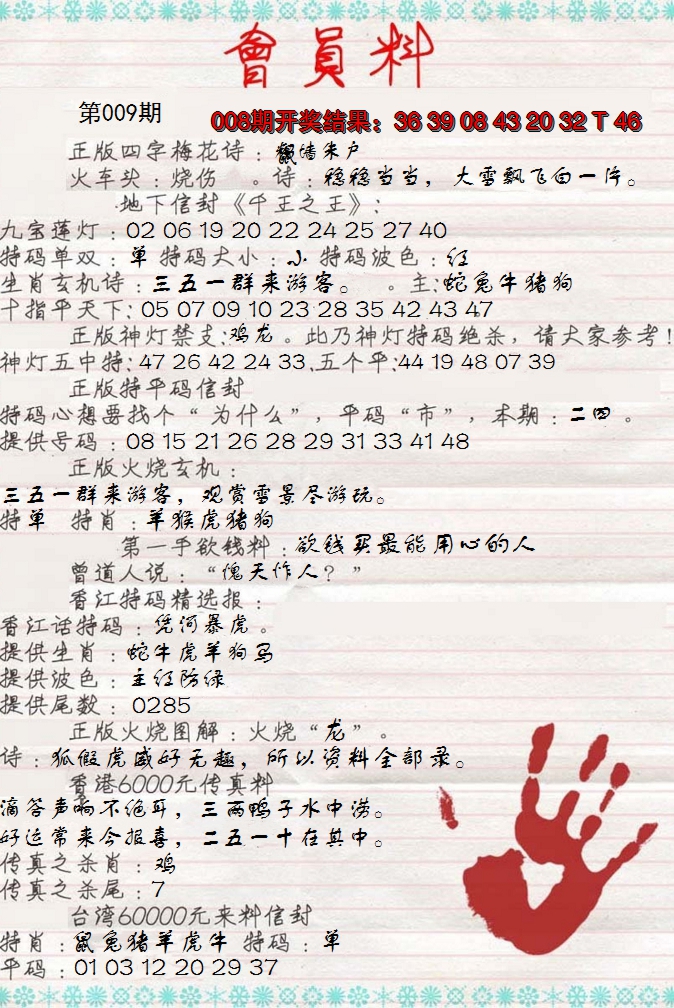 會員料
第009期
008期开奖结果：36 39 08 43 20 32 T 46
正版四字梅花诗：鬣墙朱户
火车头：烧伤 。诗：稳稳当当，大雪飘飞白一片。
地下信封《千王之王》：
九宝莲灯：02 06 19 20 22 24 25 27 40
特码单双：单 特码大小：小 特码波色：红
生肖玄机诗：三五一群来游客。 。主:蛇兔牛猪狗
十指平天下：05 07 09 10 23 28 35 42 43 47
正版神灯禁支:鸡龙。此乃神灯特码绝杀，请大家参考！
神灯五中特:47 26 42 24 33.五个平:44 19 48 07 39
正版特平码信封
特码心想要找个“为什么”，平码“市”，本期：二四。
提供号码：08 15 21 26 28 29 31 33 41 48
正版火烧玄机：
三五一群来游客，观赏雪景尽游玩。
特单 特肖：羊猴虎猪狗
第一手欲钱料：欲钱买最能用心的人
曾道人说：“愧天怍人？”
香江特码精选报：
香江话特码：凭河暴虎。
提供生肖：蛇牛虎羊狗马
提供波色：主红防绿
提供尾数：0285
正版火烧图解：火烧“龙”。
诗：狐假虎威好无趣，所以资料全部录。
香港6000元传真料
滴答声响不绝耳，三两鸭子水中涝。
好运常来今报喜，二五一十在其中。
传真之杀肖：鸡
传真之杀尾：7
台湾60000元来料信封
特肖：鼠兔猪羊虎牛 特码：单
平码：01 03 12 20 29 37